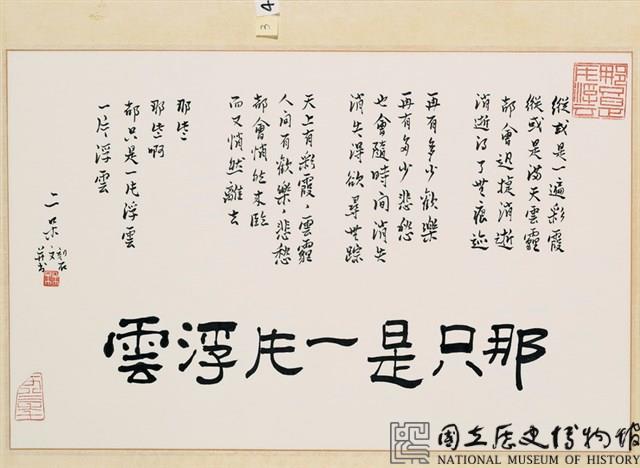 縱或是一遍彩霞
縱或是滿天雲靄
都會迅捷消逝
消逝得了無痕迹
再有多少歡樂
再有多少悲愁
也會隨時間消失
消失得欲尋無踪
天上有彩霞，雲靄
人間有歡樂，悲愁
都會悄然來臨
而又悄然離去
那些
那些啊
都只是一片浮雲
一片浮雲
二呆
并書
那只是一片浮雲
國立歷史博物館
NATIONAL MUSEUM OF HISTORY